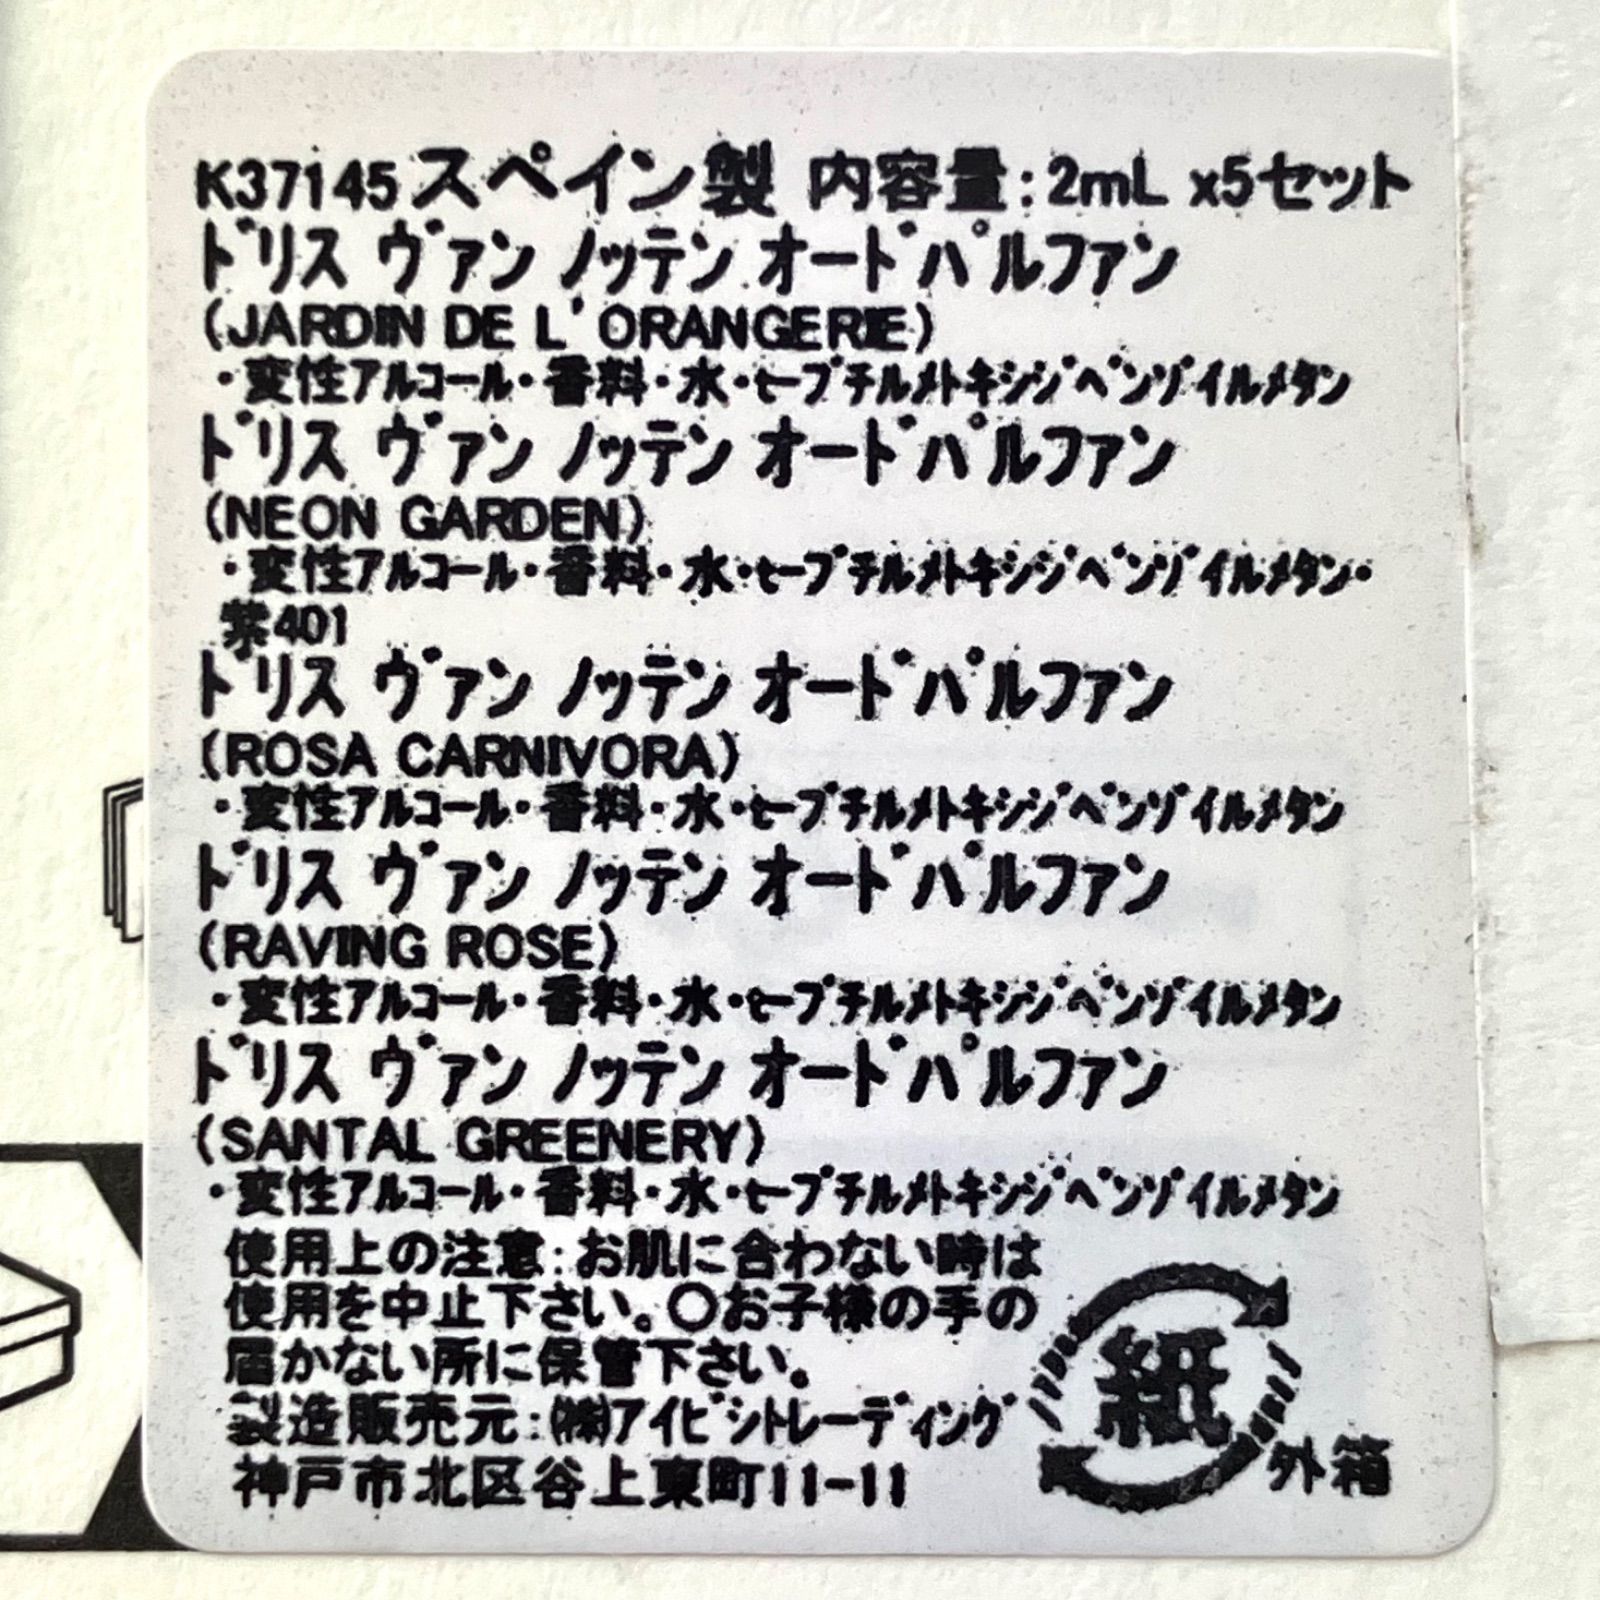 K37145スペイン製 内容量:2mL x5セット
ドリス ヴァン ノッテン オードパルファン
(JARDIN DE L'ORANGERIE)
・変性アルコール・香料・水・t-ブチルメトキシジベンゾイルメタン
ドリス ヴァン ノッテン オードパルファン
(NEON GARDEN)
・変性アルコール・香料・水・t-ブチルメトキシジベンゾイルメタン・
紫401
ドリス ヴァン ノッテン オードパルファン
(ROSA CARNIVORA)
・変性アルコール・香料・水・t-ブチルメトキシジベンゾイルメタン
ドリス ヴァン ノッテン オードパルファン
(RAVING ROSE)
・変性アルコール・香料・水・t-ブチルメトキシジベンゾイルメタン
ドリス ヴァン ノッテン オードパルファン
(SANTAL GREENERY)
・変性アルコール・香料・水・t-ブチルメトキシジベンゾイルメタン
使用上の注意:お肌に合わない時は
使用を中止下さい。○お子様の手の
届かない所に保管下さい。
製造販売元:㈱アイビシトレーディング
神戸市北区谷上東町11-11
紙
外箱